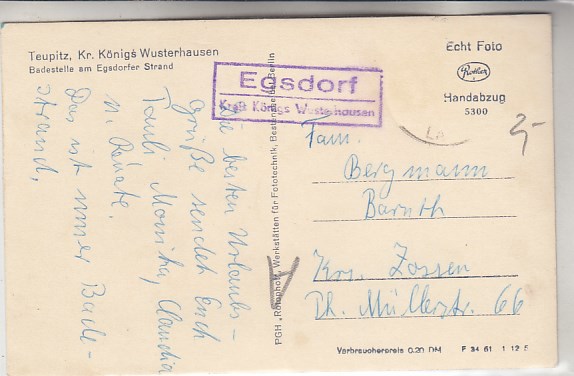 Teupitz, Kr. Königs Wusterhausen
Badestelle am Egsdorfer Strand
Egsdorf
Kreis Königs Wusterhausen
Die besten Urlaubs-
grüße sendet Euch
Monika, Claudia
u. Renate.
Das ist unser Bade-
strand,
PGH „Rotophot", Werkstätten für Fototechnik, Bestensee bei Berlin
Echt Foto
Handabzug
5300
2,-
Fam.
Bergmann
Baruth
Krs. Zossen
Th. Müllerstr. 66
Verbraucherpreis 0.20 DM
F 34 61 1 12 5